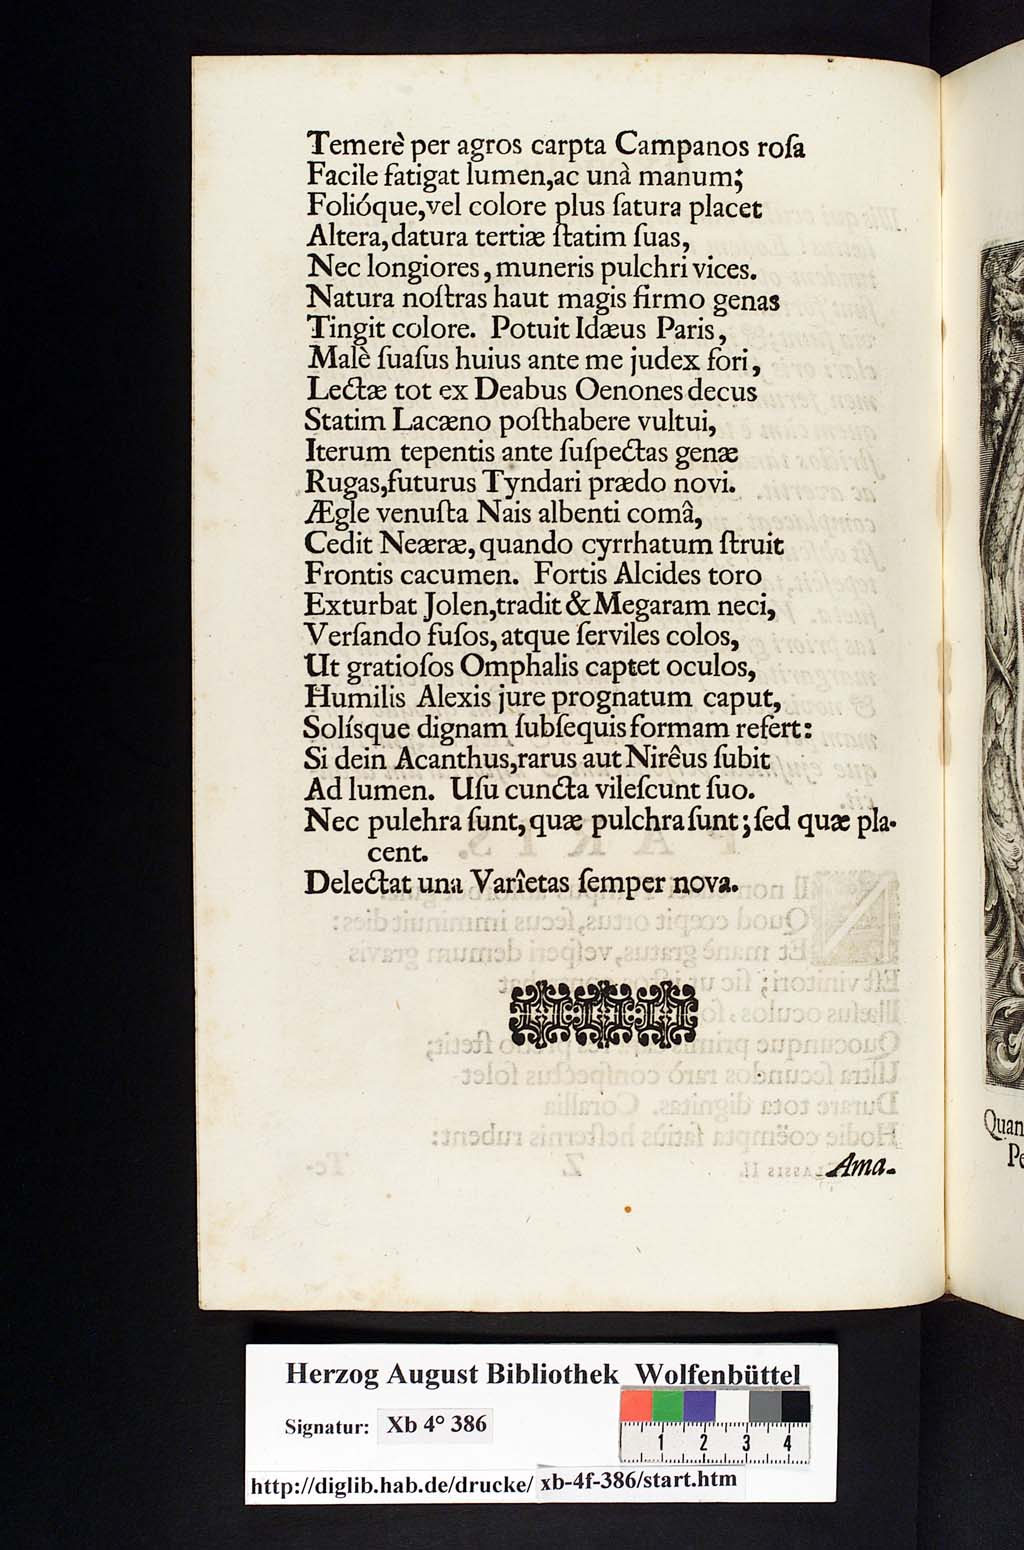 Temerè per agros carpta Campanos roſa
Facile fatigat lumen, ac unà manum;
Folióque, vel colore plus ſatura placet
Altera, datura tertiæ ſtatim ſuas,
Nec longiores, muneris pulchri vices.
Natura noſtras haut magis firmo genas
Tingit colore. Potuit Idæus Paris,
Malè ſuaſus huius ante me judex fori,
Lectæ tot ex Deabus Oenones decus
Statim Lacæno poſthabere vultui,
Iterum tepentis ante ſuſpectas genæ
Rugas, futurus Tyndari prædo novi.
Ægle venuſta Nais albenti comâ,
Cedit Neæræ, quando cyrrhatum ſtruit
Frontis cacumen. Fortis Alcides toro
Exturbat Jolen, tradit & Megaram neci,
Verſando fuſos, atque ſerviles colos,
Ut gratioſos Omphalis captet oculos,
Humilis Alexis jure prognatum caput,
Solísque dignam ſubſequis formam refert:
Si dein Acanthus, rarus aut Nirêus ſubit
Ad lumen. Uſu cuncta vileſcunt ſuo.
Nec pulehra ſunt, quæ pulchra ſunt; ſed quæ pla-
cent.
Delectat una Varîetas ſemper nova.
Ama-
Quan
Pe
Herzog August Bibliothek Wolfenbüttel
Signatur: Xb 4° 386
1 2 3 4
http://diglib.hab.de/drucke/ xb-4f-386/start.htm